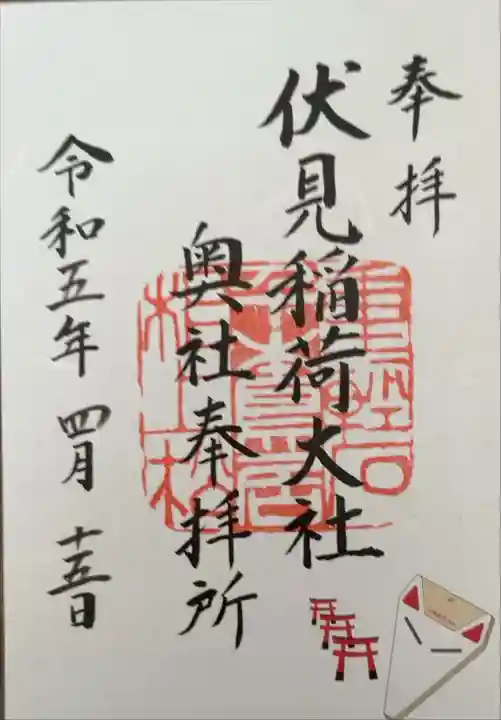 奉拝
伏見稲荷大社
奥社奉拝所
令和五年四月十五日